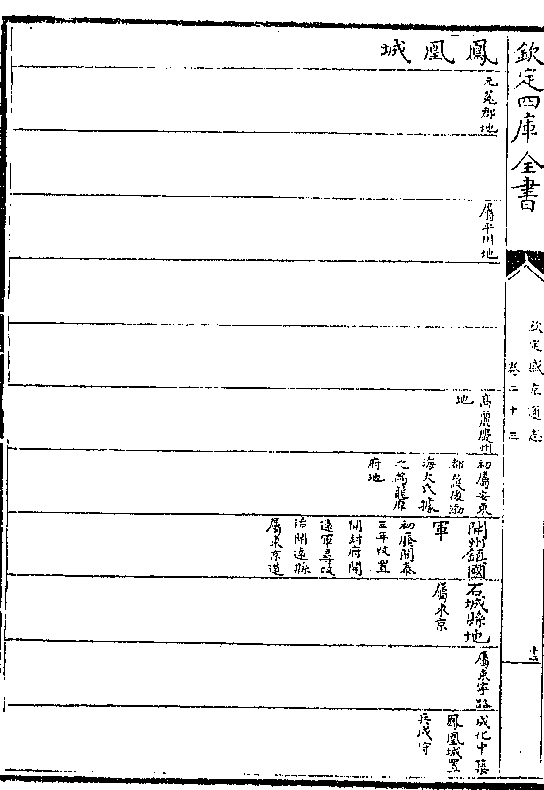 欽定四庫全書
欽定盛京通志
卷二十三
鳳凰城
元菟郡地
屬平州地
高麗慶州
地
初屬安東
都護後渤
海大氏據
之為龍原
府地
開州鎮國
軍
初廢開泰
三年改置
開封府開
遠軍尋改
治開遠縣
屬東京道
石城縣地
屬東京
屬東寧路
成化中築
鳳凰城置
兵戍守